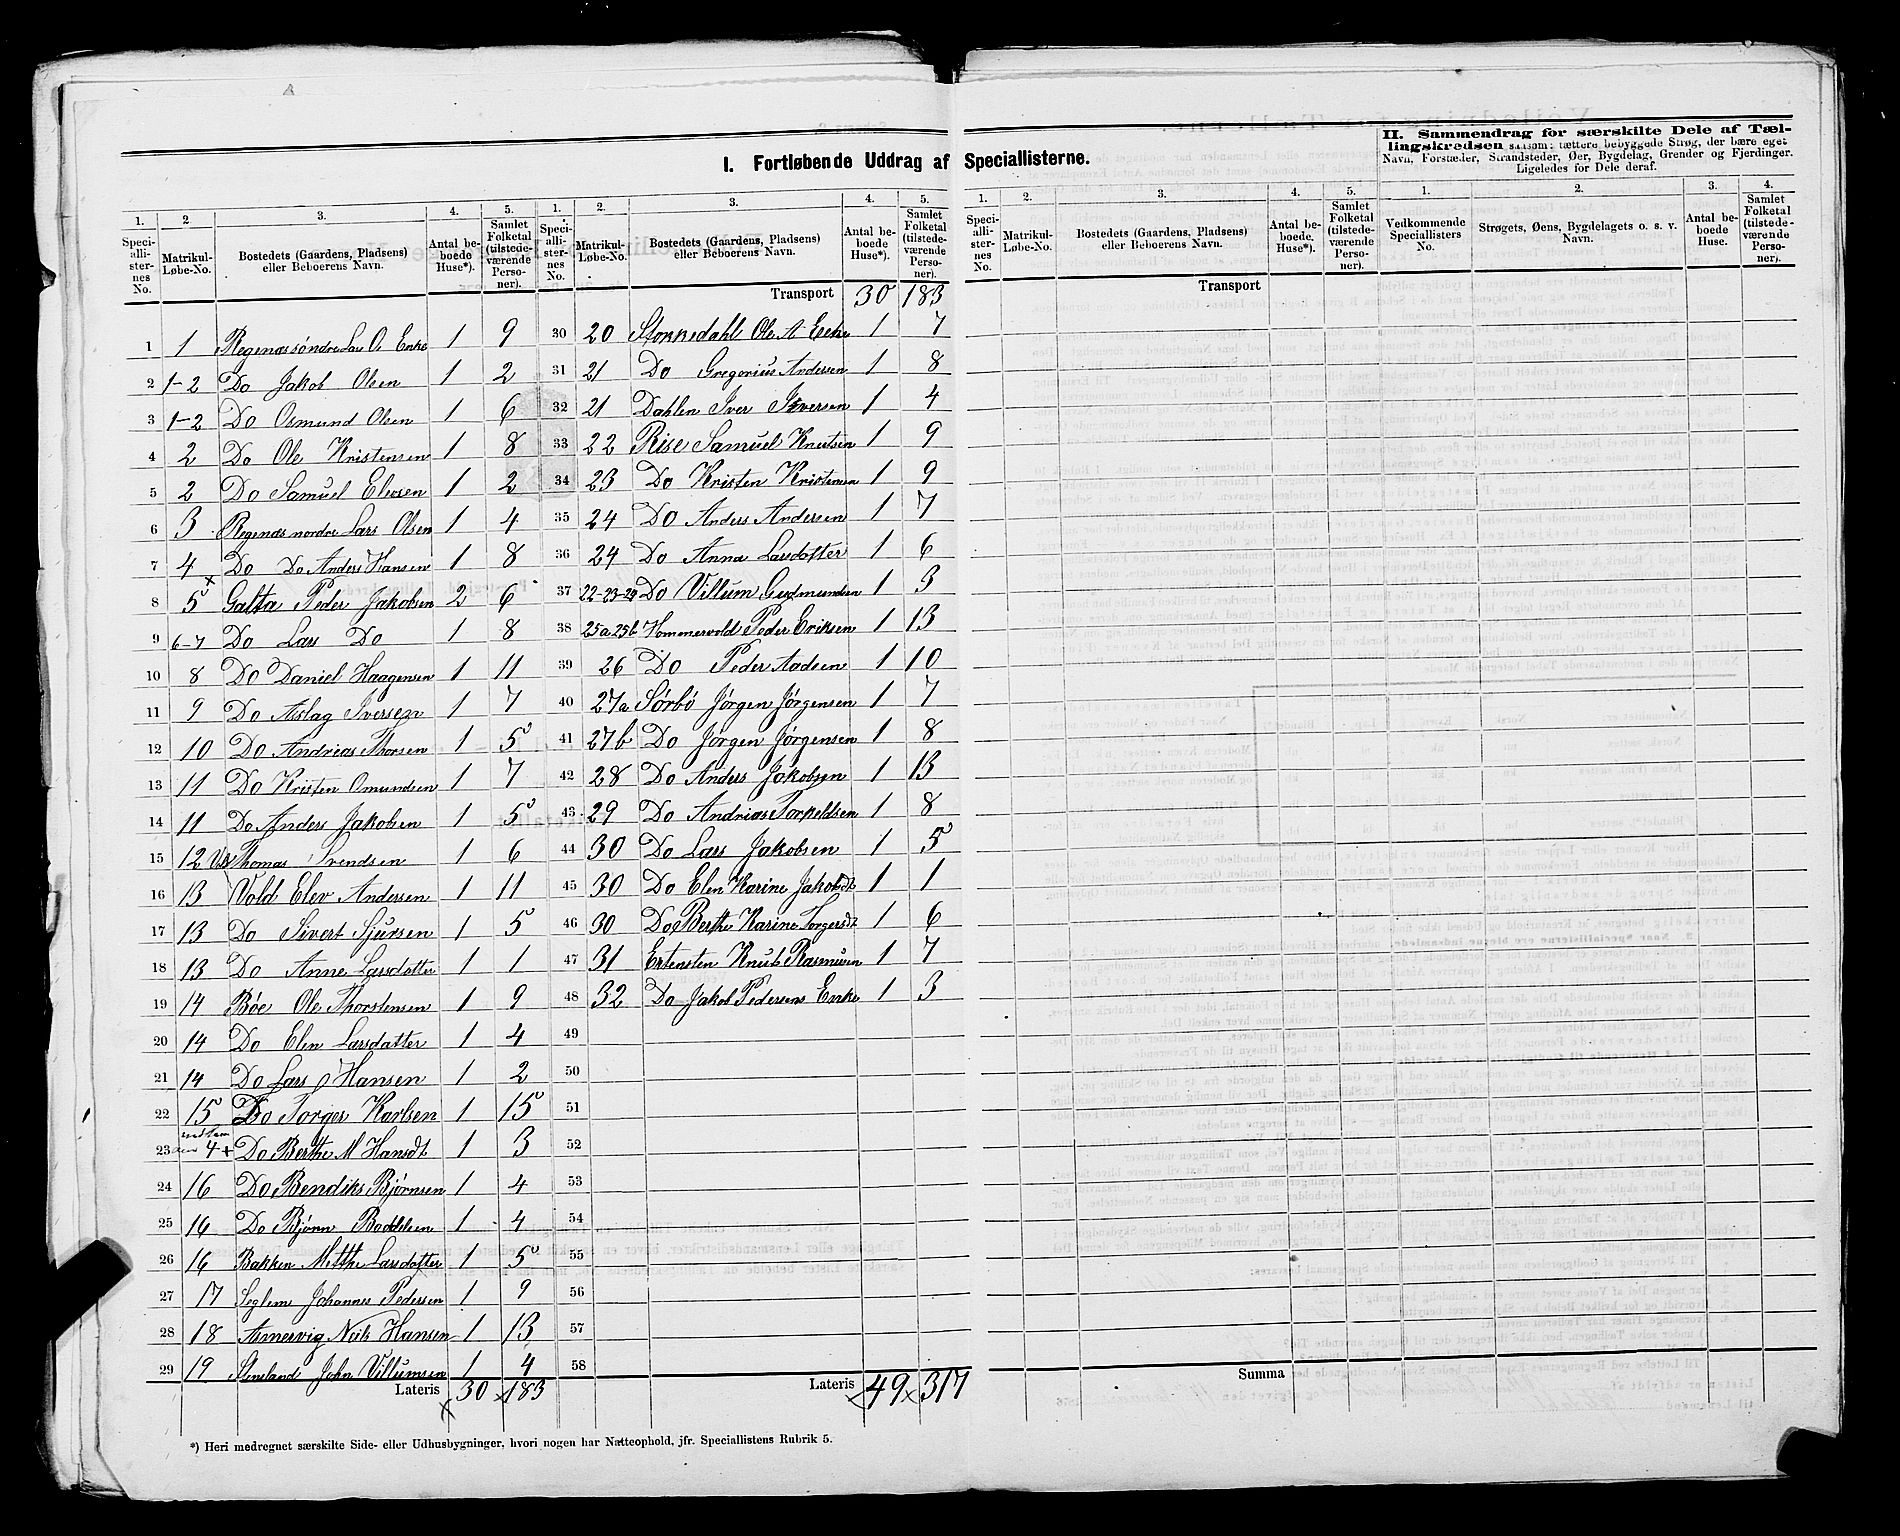 I. Fortløbende Uddrag af Speciallisterne.
II. Sammendrag for særskilte Dele af Tæl-
lingskredsen saasom: tættere bebyggede Strøg, der bære eget
Navn, Forstæder, Strandsteder, Øer, Bygdelag, Grender og Fjerdinger.
Ligeledes for Dele deraf.
1. 2. 3. 4. 5. 1. 2. 3. 4. 5. 1. 2. 3. 4. 5. 1. 2. 3. 4.
Speci-alli-ster-nes No. Matrikul-Løbe-No. Bostedets (Gaardens, Pladsens) eller Beboerens Navn. Antal be-boede Huse*). Samlet Folketal (tilstede-værende Perso-ner).
Speci-alli-ster-nes No. Matrikul-Løbe-No. Bostedets (Gaardens, Pladsens) eller Beboerens Navn. Antal be-boede Huse*). Samlet Folketal (tilstede-værende Perso-ner).
Speci-alli-ster-nes No. Matrikul-Løbe-No. Bostedets (Gaardens, Pladsens) eller Beboerens Navn. Antal be-boede Huse*). Samlet Folketal (tilstede-værende Perso-ner).
Vedkommende Speciallisters No. Strøgets, Øens, Bygdelagets o. s. v. Navn. Antal be-boede Huse. Samlet Folketal (tilstede-værende Perso-ner).
1 1 Regenæs søndre Lars O. Enke 1 9
2 1-2 Do Jakob Olsen 1 2
3 1-2 Do Osmund Olsen 1 6
4 2 Do Ole Kristensen 1 8
5 2 Do Samuel Elevsen 1 2
6 3 Regenæs nordre Lars Olsen 1 4
7 4 Do Do Anders Hansen 1 8
8 5 x Galta Peder Jakobsen 2 6
9 6-7 Do Lars Do 1 8
10 8 Do Daniel Haagensen 1 11
11 9 Do Aslag Iversen 1 7
12 10 Do Andreas Thorsen 1 5
13 11 Do Kristen Omundsen 1 7
14 11 Do Anders Jakobsen 1 5
15 12 Thomas Svendsen 1 6
16 13 Vold Elev Andersen 1 11
17 13 Do Sivert Sjursen 1 5
18 13 Do Anne Larsdatter 1 1
19 14 Bøe Ole Thorstensen 1 9
20 14 Do Elen Larsdatter 1 4
21 14 Do Lars Hansen 1 2
22 15 Do Torger Karlsen 1 15
23 4 + Do Berthe M Hansdt 1 3
24 16 Do Bendiks Bjørnsen 1 4
25 16 Do Bjørn 1 4
26 16 Bakken Metthe Larsdatter 1 5
27 17 Seglem Johannes Pedersen 1 9
28 18 Asmervig Niels Hansen 1 13
29 19 Stensland John Villumsen 1 4
Lateris 30 x 183
x
Transport 30 183
30 20 Stokkedahl Ole A Enke 1 7
31 21 Do Gregorius Andersen 1 8
32 21 Dahlen Iver Iversen 1 4
33 22 Rise Samuel Knutsen 1 9
34 23 Do Kristen Kristensen 1 9
35 24 Do Anders Andersen 1 7
36 24 Do Anna Larsdatter 1 6
37 22-23-24 Do Villum Gudmundsen 1 3
38 25a 25b Hommervold Peder Eriksen 1 13
39 26 Do Peder Aadsen 1 10
40 27a Sørbø Jørgen Jørgensen 1 7
41 27b Do Jørgen Jørgensen 1 8
42 28 Do Anders Jakobsen 1 13
43 29 Do Andreas Torkeldsen 1 8
44 30 Do Lars Jakobsen 1 5
45 30 Do Elen Karine Jakobsdt 1 1
46 30 Do Berthe Karine Torgersdt 1 6
47 31 Ertensten Knut Rasmusen 1 7
48 32 Do Jakob Pedersens Enke 1 3
49
50
51
52
53
54
55
56
57
58
Lateris x 49 x 317
Transport
Summa
*) Heri medregnet særskilte Side- eller Udhusbygninger, hvori nogen har Natteophold, jfr. Speciallistens Rubrik 5.